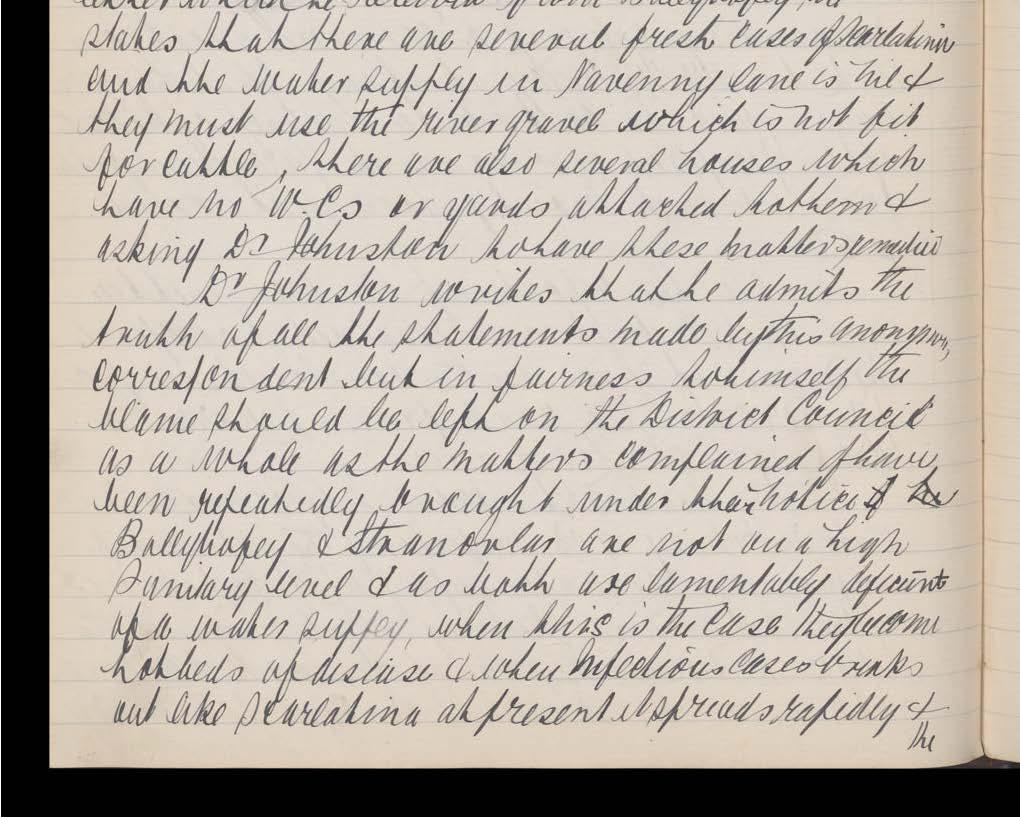 letter which he received from Ballybofey,
states that there are several fresh cases of Scarlatina
and the water supply in Navenny lane is nil &
they must use the river gravel which is not fit
for cattle, there are also several houses which
have no W.Cs or yards attached to them &
asking Dr Johnston to have these matters remedied
Dr Johnston writes that he admits the
truth of all the statements made by this anonymous
correspondent but in fairness to himself the
blame should be left on the District Council
as a whole as the matters complained of have
been repeatedly brought under their notice
Ballybofey & Stranorlar are not on a high
Sanitary level & as both are lamentably deficient
of a water supply, when this is the case they become
hotbeds of disease & when infectious cases breaks
out like Scarlatina at present it spreads rapidly &
the